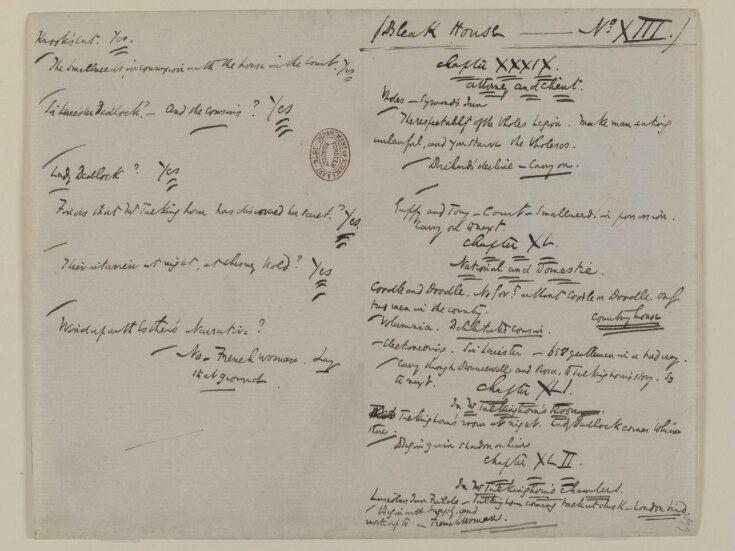 Krook's Cat. Yes.
The Smallweeds, in connexion with the house in the Court. Yes
Sir Leicester Dedlock? – And the cousins? Yes
Lady Dedlock? Yes
Finds that Mr Tulkinghorn has discovered her secret.? Yes.
Their interview at night, at Chesney Wold? Yes
Wind up with Esther's Narrative?
No – Frenchwoman. Lay
that ground
(Bleak House — No XIII.)
Chapter XXXIX.
Attorney and Client.
Vholes – Symond's Inn
The respectability of the Vholes Legion. Make man-eating
unlawful, and you starve the Vholeses.
Richard's decline – Carry on.
Guppy and Tony – Court – Smallweeds in possession.
Carry on to next.
Chapter XL.
National and Domestic.
Coodle and Doodle. No Govt without Coodle or Doodle. Only
two men in the country.
Country house
Volumnia. Debilitated cousin.
Electioneering. Sir Leicester – 658 gentlemen in a bad way.
Carry through Rouncewell and Rosa, to Tulkinghorn's story. So
to next.
Chapter XLI.
In Mr Tulkinghorn's Room.
Tulkinghorn's room at night. Lady Dedlock comes to him
there.
Begin grim shadow on him
Chapter XLII
In Mr Tulkinghorn's Chambers.
Lincolns Inn Fields – Tulkinghorn coming back at dusk – London bird
Begin with Snagsby, and
work up to – Frenchwoman